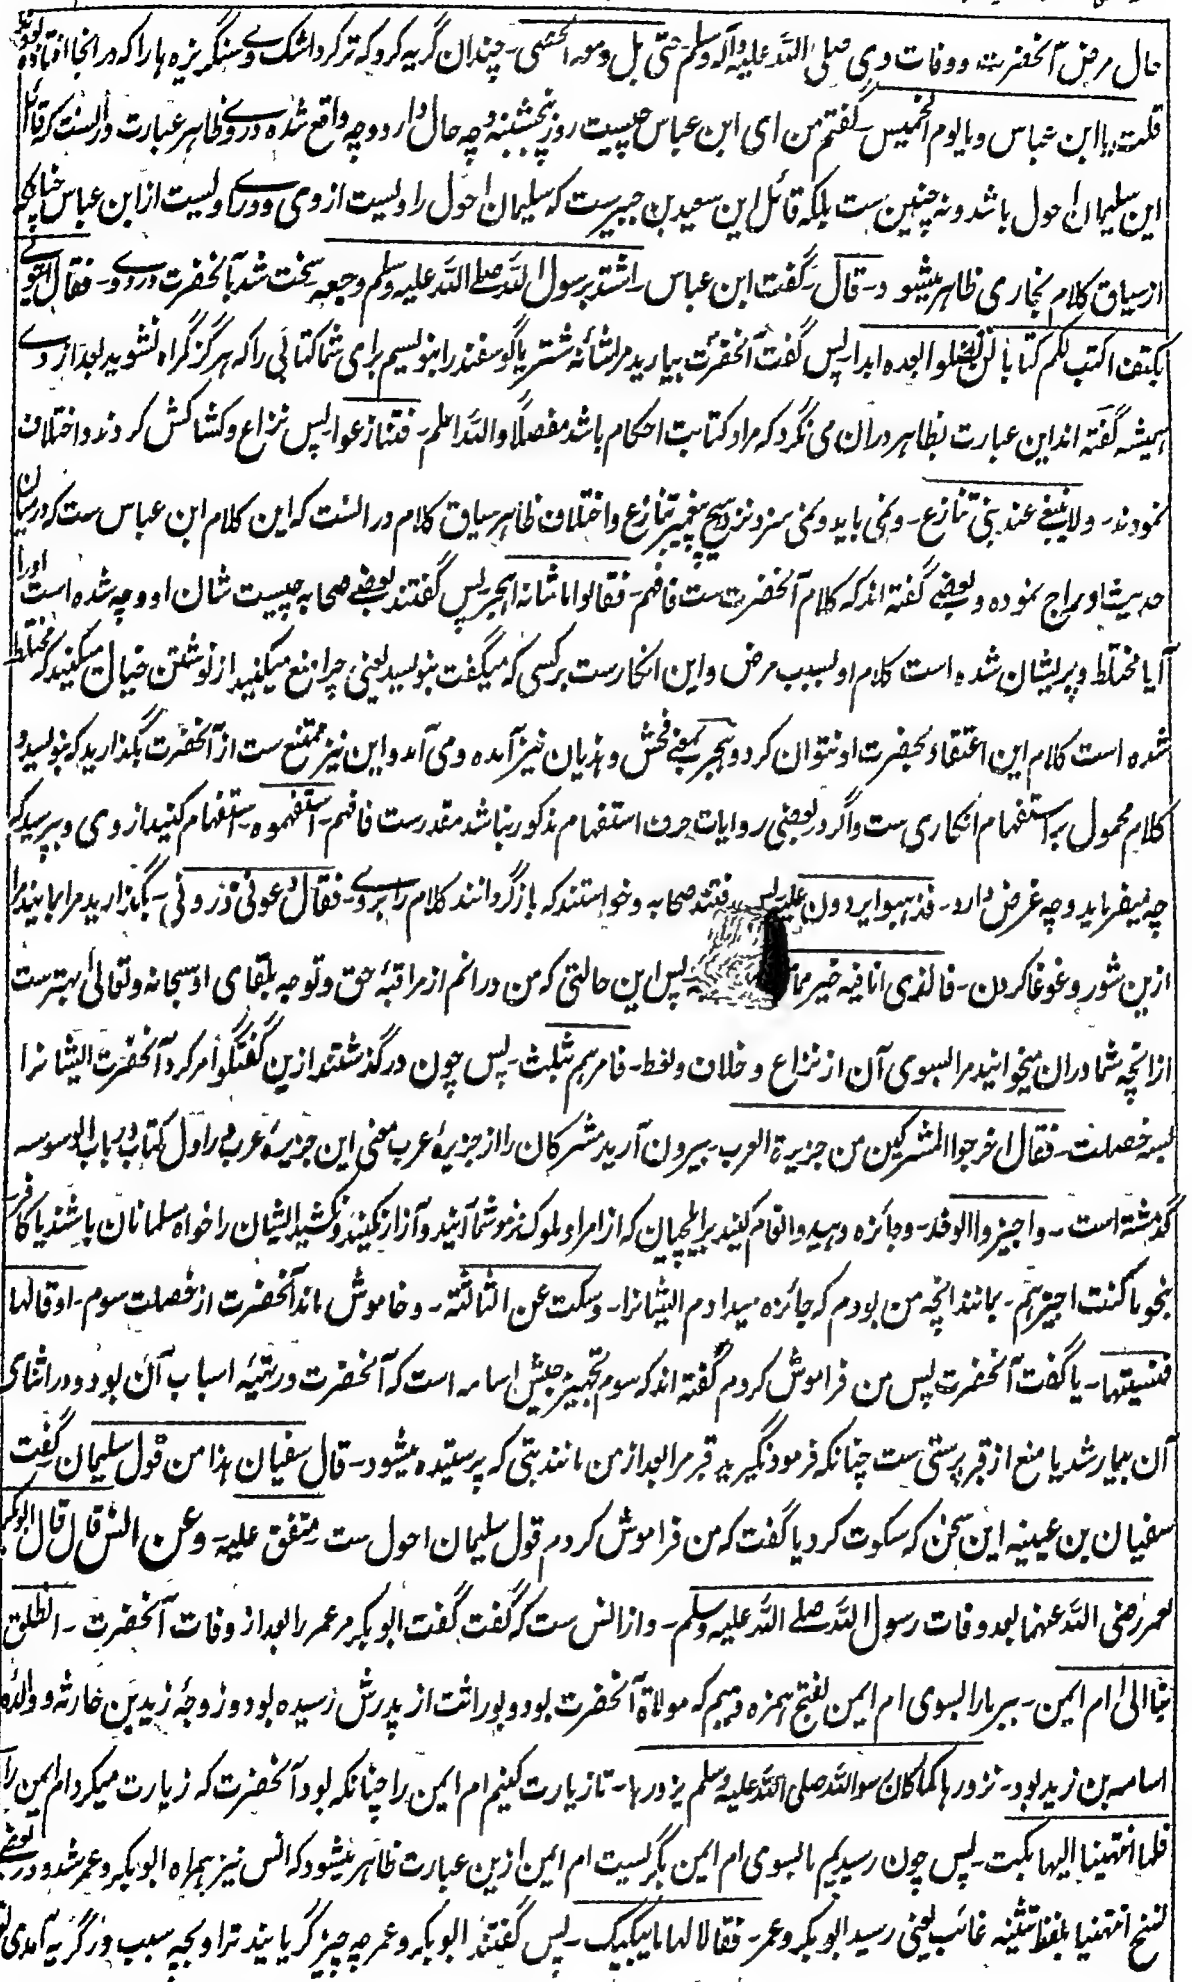 حال مرض آنحضرت ووفات وی صلی اللہ علیہ وآلہ وسلم حتی بل دمعہ الحصی۔ چندان گریہ کرد کہ تر کرد اشک وے سنگریزہ ہا را کہ در انجا افتادہ بودند
قلت یا ابن عباس وما یوم الخمیس۔ گفتم من ای ابن عباس چیست روز پنجشنبہ وچہ حال دارد وچہ واقع شدہ در وے وظاہر عبارت در انست کہ قائل
این سلیمان احول باشد ونہ چنین ست بلکہ قائل این سعید بن جبیر ست کہ سلیمان احول راویست از وی و وے راویست از ابن عباس چنانکہ
از سیاق کلام بخاری ظاہر میشود۔ قال۔ گفت ابن عباس۔ اشتد برسول اللہ صلے اللہ علیہ وسلم وجعہ۔ سخت شد بآنحضرت درد وے۔ فقال ائتونی
بکتف اکتب لکم کتابا لن تضلوا بعدہ ابدا۔ پس گفت آنحضرت بیارید مرا شانہ شتر یا گوسفند را بنویسم برای شما کتابی را کہ ہرگز گمراہ نشوید بعد از وے
ہمیشہ گفتہ اند این عبارت بظاہر دران می نگرد کہ مراد کتابت احکام باشد مفصلا واللہ اعلم۔ فتنازعوا۔ پس نزاع وکشاکش کردند واختلاف
نمودند۔ ولا ینبغے عند نبی تنازع۔ ونمی باید ونمی سزد نزد ہیچ پیغمبر تنازع واختلاف ظاہر سیاق کلام در انست کہ این کلام ابن عباس ست کہ درمیان
حدیث او را ادراج نمودہ وبعضے گفتہ اند کہ کلام آنحضرت ست فافہم۔ فقالوا ما شانہ اہجر۔ پس گفتند بعضے صحابہ چیست شان او وچہ شدہ است او را
آیا مختلط وپریشان شدہ است کلام او بسبب مرض واین انکارست بر کسی کہ میگفت بنویسید یعنی چرا منع میکنید از نوشتن خیال میکنید کہ مختلط
شدہ است کلام این اعتقاد بحضرت او نتوان کرد وہجر بمعنے فحش وہذیان نیز آمدہ ومی آمد واین نیز ممتنع ست از آنحضرت بگذارید کہ بنویسد و
کلام محمول بر استفہام انکاری ست واگر در بعضی روایات حرف استفہام مذکور نباشد مقدر ست فافہم۔ استفہموہ۔ استفہام کنید از وی وبپرسید کہ
چہ میفرماید وچہ غرض دارد۔ فذہبوا یردون علیہ۔ پس رفتند صحابہ وخواستند کہ بازگردانند کلام را بر وے۔ فقال دعونی ذرونی۔ بگذارید مرا بمانید مرا
ازین شور وغوغا کردن۔ فالذی انا فیہ خیر مما پس این حالتی کہ من در انم از مراقبۂ حق وتوجہ بلقای او سبحانہ وتعالی بہتر ست
از انچہ شما دران میخوانید مرا بسوی آن از نزاع وخلاف ولغط۔ فامرہم بثلث۔ پس چون درگذشتند ازین گفتگو امر کرد آنحضرت ایشانرا
بسہ خصلت۔ فقال اخرجوا المشرکین من جزیرة العرب۔ بیرون آرید مشرکان را از جزیرۂ عرب معنی این جزیرۂ عرب در اول کتاب در باب الوسوسہ
گذشتہ است۔ واجیزوا الوفد۔ وجائزہ دہید وانعام کنید برایلچیان کہ از امرا وملوک نزد شما آیند وآزار نکنید ونکشید ایشان را خواہ مسلمانان باشند یا کافر
بنحو ما کنت اجیزہم۔ بمانند انچہ من بودم کہ جائزہ میدادم ایشانرا۔ وسکت عن الثالثة۔ وخاموش ماند آنحضرت از خصلت سوم۔ او قالہا
فنسیتہا۔ یا گفت آنحضرت پس من فراموش کردم گفتہ اند کہ سوم تجہیز جیش اسامہ است کہ آنحضرت در تہیۂ اسباب آن بود ودر اثنای
آن بیمار شد یا منع از قبر پرستی ست چنانکہ فرمود نگیرید قبر مرا بعد از من مانند بتی کہ پرستیدہ میشود۔ قال سفیان ہذا من قول سلیمان۔ گفت
سفیان بن عیینہ این سخن کہ سکوت کرد یا گفت کہ من فراموش کردم قول سلیمان احول ست۔ متفق علیہ۔ وعن انس قال قال ابو بکر
لعمر رضی اللہ عنہما بعد وفات رسول اللہ صلے اللہ علیہ وسلم۔ واز انس ست کہ گفت گفت ابو بکر مر عمر را بعد از وفات آنحضرت۔ انطلق
بنا الی ام ایمن۔ ببر ما را بسوی ام ایمن بفتح ہمزہ ومیم کہ مولاة آنحضرت بود وبوراثت از پدرش رسیدہ بود وزوجۂ زید بن حارثہ ووالدہ
اسامہ بن زید بود۔ نزورہا کما کان رسول اللہ صلی اللہ علیہ وسلم یزورہا۔ تا زیارت کنیم ام ایمن را چنانکہ بود آنحضرت کہ زیارت میکرد ام ایمن را
فلما انتہینا الیہا بکت۔ پس چون رسیدیم ما بسوی ام ایمن بگریست ام ایمن ازین عبارت ظاہر میشود کہ انس نیز ہمراہ ابو بکر وعمر شد ودر بعضے
نسخ انتہیا بلفظ تثنیہ غائب یعنی رسید ابو بکر وعمر۔ فقالا لہا ما یبکیک۔ پس گفتند ابو بکر وعمر چہ چیز گریانید ترا وبچہ سبب در گریہ آمدی